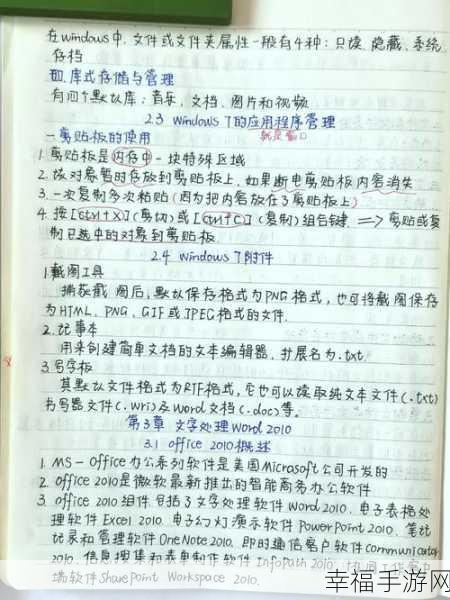 在windows中,文件或文件夹属性一般有4种:只读、隐藏、系统
存档
四.库式存储与管理
有四个默认库:音乐、文档、图片和视频
2.3 Windows 7的应用程序管理
一剪贴板的使用
就是窗口
1.剪贴板是内存中一块特殊区域
2.该对象暂时存放到剪贴板上,如果断电剪贴板内容消失
3.一次复制多次粘贴(因为把内容放在了剪贴板上)
4.按[Ctrl+X](剪切)或[Ctrl+C](复制)组合键 ⟹ 剪贴或复
制已选中的对象到剪贴板
2.4 Windows 7附件
1.截图工具
捕获截图后,默认保存格式为PNG格式,也可将截图保存
为HTML、PNG、GIF或JPEG格式的文件.
2.记事本
用来创建简单文档的文本编辑器.扩展名为.txt
3.写字板
其默认文件格式为RTF格式,它也可以读取纯文本文件(.txt)
书写器文件(.wri)及Word文档(.doc)等.
第3章 文字处理Word 2010
3.1 office 2010概述
1. MS-Office办公系列软件是美国Microsoft公司开发的
2. office 2010是微软最新推出的智能商务办公软件
3. office 2010组件包括了文字处理软件Word 2010、电子表格处
理软件Excel 2010、电子幻灯演示软件PowerPoint 2010、笔记
记录和管理软件OneNote 2010、即时通信客户软件Communicator
2010、信息搜集和表单制作软件InfoPath 2010、协同工作客户
端软件SharePoint Workspace 2010.
幸福手游网